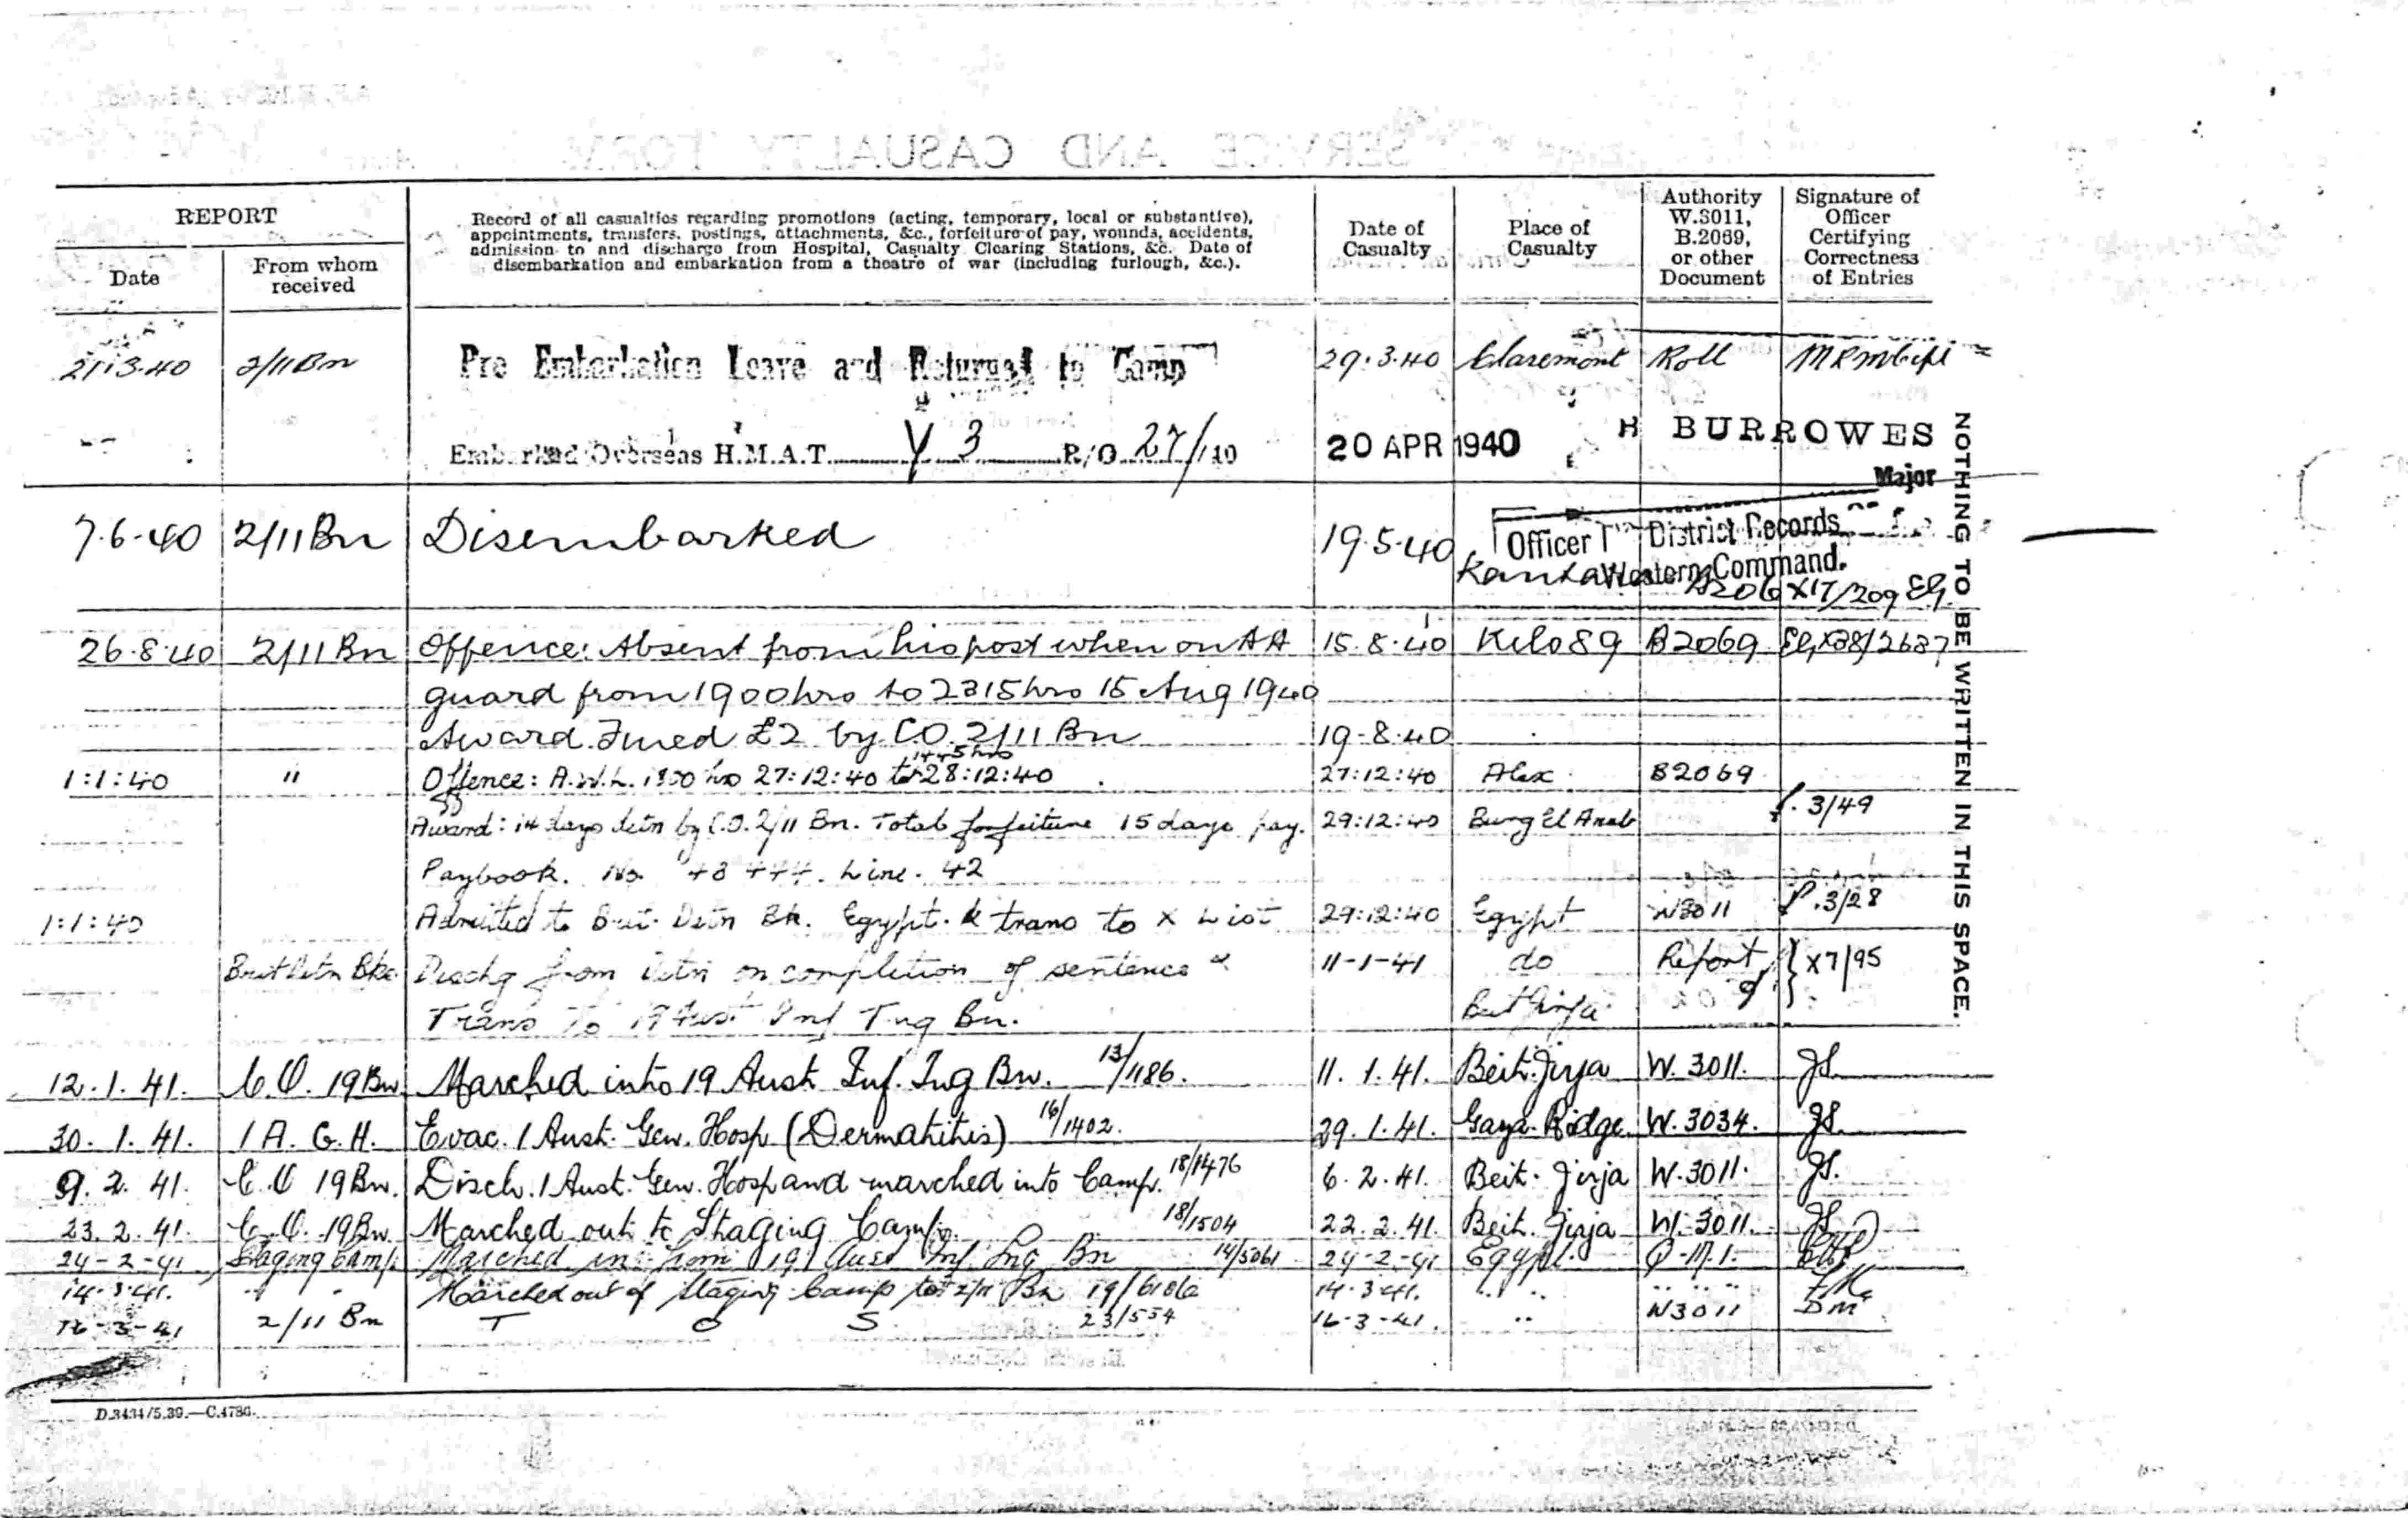 SERVICE AND CASUALTY FORM
REPORT
Date
From whom received
Record of all casualties regarding promotions (acting, temporary, local or substantive),
appointments, transfers, postings, attachments, &c., forfeiture of pay, wounds, accidents,
admission to and discharge from Hospital, Casualty Clearing Stations, &c. Date of
disembarkation and embarkation from a theatre of war (including furlough, &c.).
Date of Casualty
Place of Casualty
Authority W.3011, B.2069, or other Document
Signature of Officer Certifying Correctness of Entries
21.3.40 2/11 Bn Pre Embarkation Leave and Returned to Camp 29.3.40 Claremont Roll
Embarked Overseas H.M.A.T. Y 3 R/O 27/40 20 APR 1940 H BURROWES
Major
7.6.40 2/11 Bn Disembarked 19.5.40
Officer District Records
Western Command.
26.8.40 2/11 Bn Offence: Absent from his post when on AA 15.8.40 Kilo 89 B2069
guard from 1900hrs to 2315hrs 15 Aug 1940
Award. Fined £2 by CO. 2/11 Bn 19-8-40
1:1:40 " Offence: A.W.L. 1800 hrs 27:12:40 to 1445 hrs 28:12:40 27:12:40 Alex B2069
Award: 14 days detn by C.O. 2/11 Bn. Total forfeiture 15 days pay. 29:12:40 Burg El Arab 3/49
Paybook. No. Line. 42
1:1:40 Admitted to Brit. Detn Bk. Egypt. & trans to X List 29:12:40 Egypt W3011 3/28
Brit Detn Bks Dischg from detn on completion of sentence & 11-1-41 do Report X7/95
Trans To 19 Aust Inf Tng Bn. Beit Jirja
12.1.41. C.O. 19 Bn Marched into 19 Aust Inf. Tng Bn. 13/1186. 11.1.41. Beit Jirja W.3011. JS.
30.1.41. 1 A.G.H. Evac. 1 Aust. Gen. Hosp (Dermatitis) 16/1402. 29.1.41. Gaza Ridge W.3034. JS.
9.2.41. C.O 19 Bn. Disch. 1 Aust. Gen. Hosp and marched into Camp. 18/1476 6.2.41. Beit Jirja W.3011. JS.
23.2.41. C.O. 19 Bn. Marched out to Staging Camp. 18/1504 22.2.41. Beit Jirja W.3011. JS
24-2-41 Staging Camp Marched in from 19 Aust Inf Tng Bn 14/5061 24-2-41 Egypt
14.3.41. " " Marched out of Staging Camp to 2/11 Bn 14.3.41. " "
16-3-41 2/11 Bn T O S 23/554 16-3-41. " W3011 DM
NOTHING TO BE WRITTEN IN THIS SPACE.
D.3434/5.39.—C.4786.